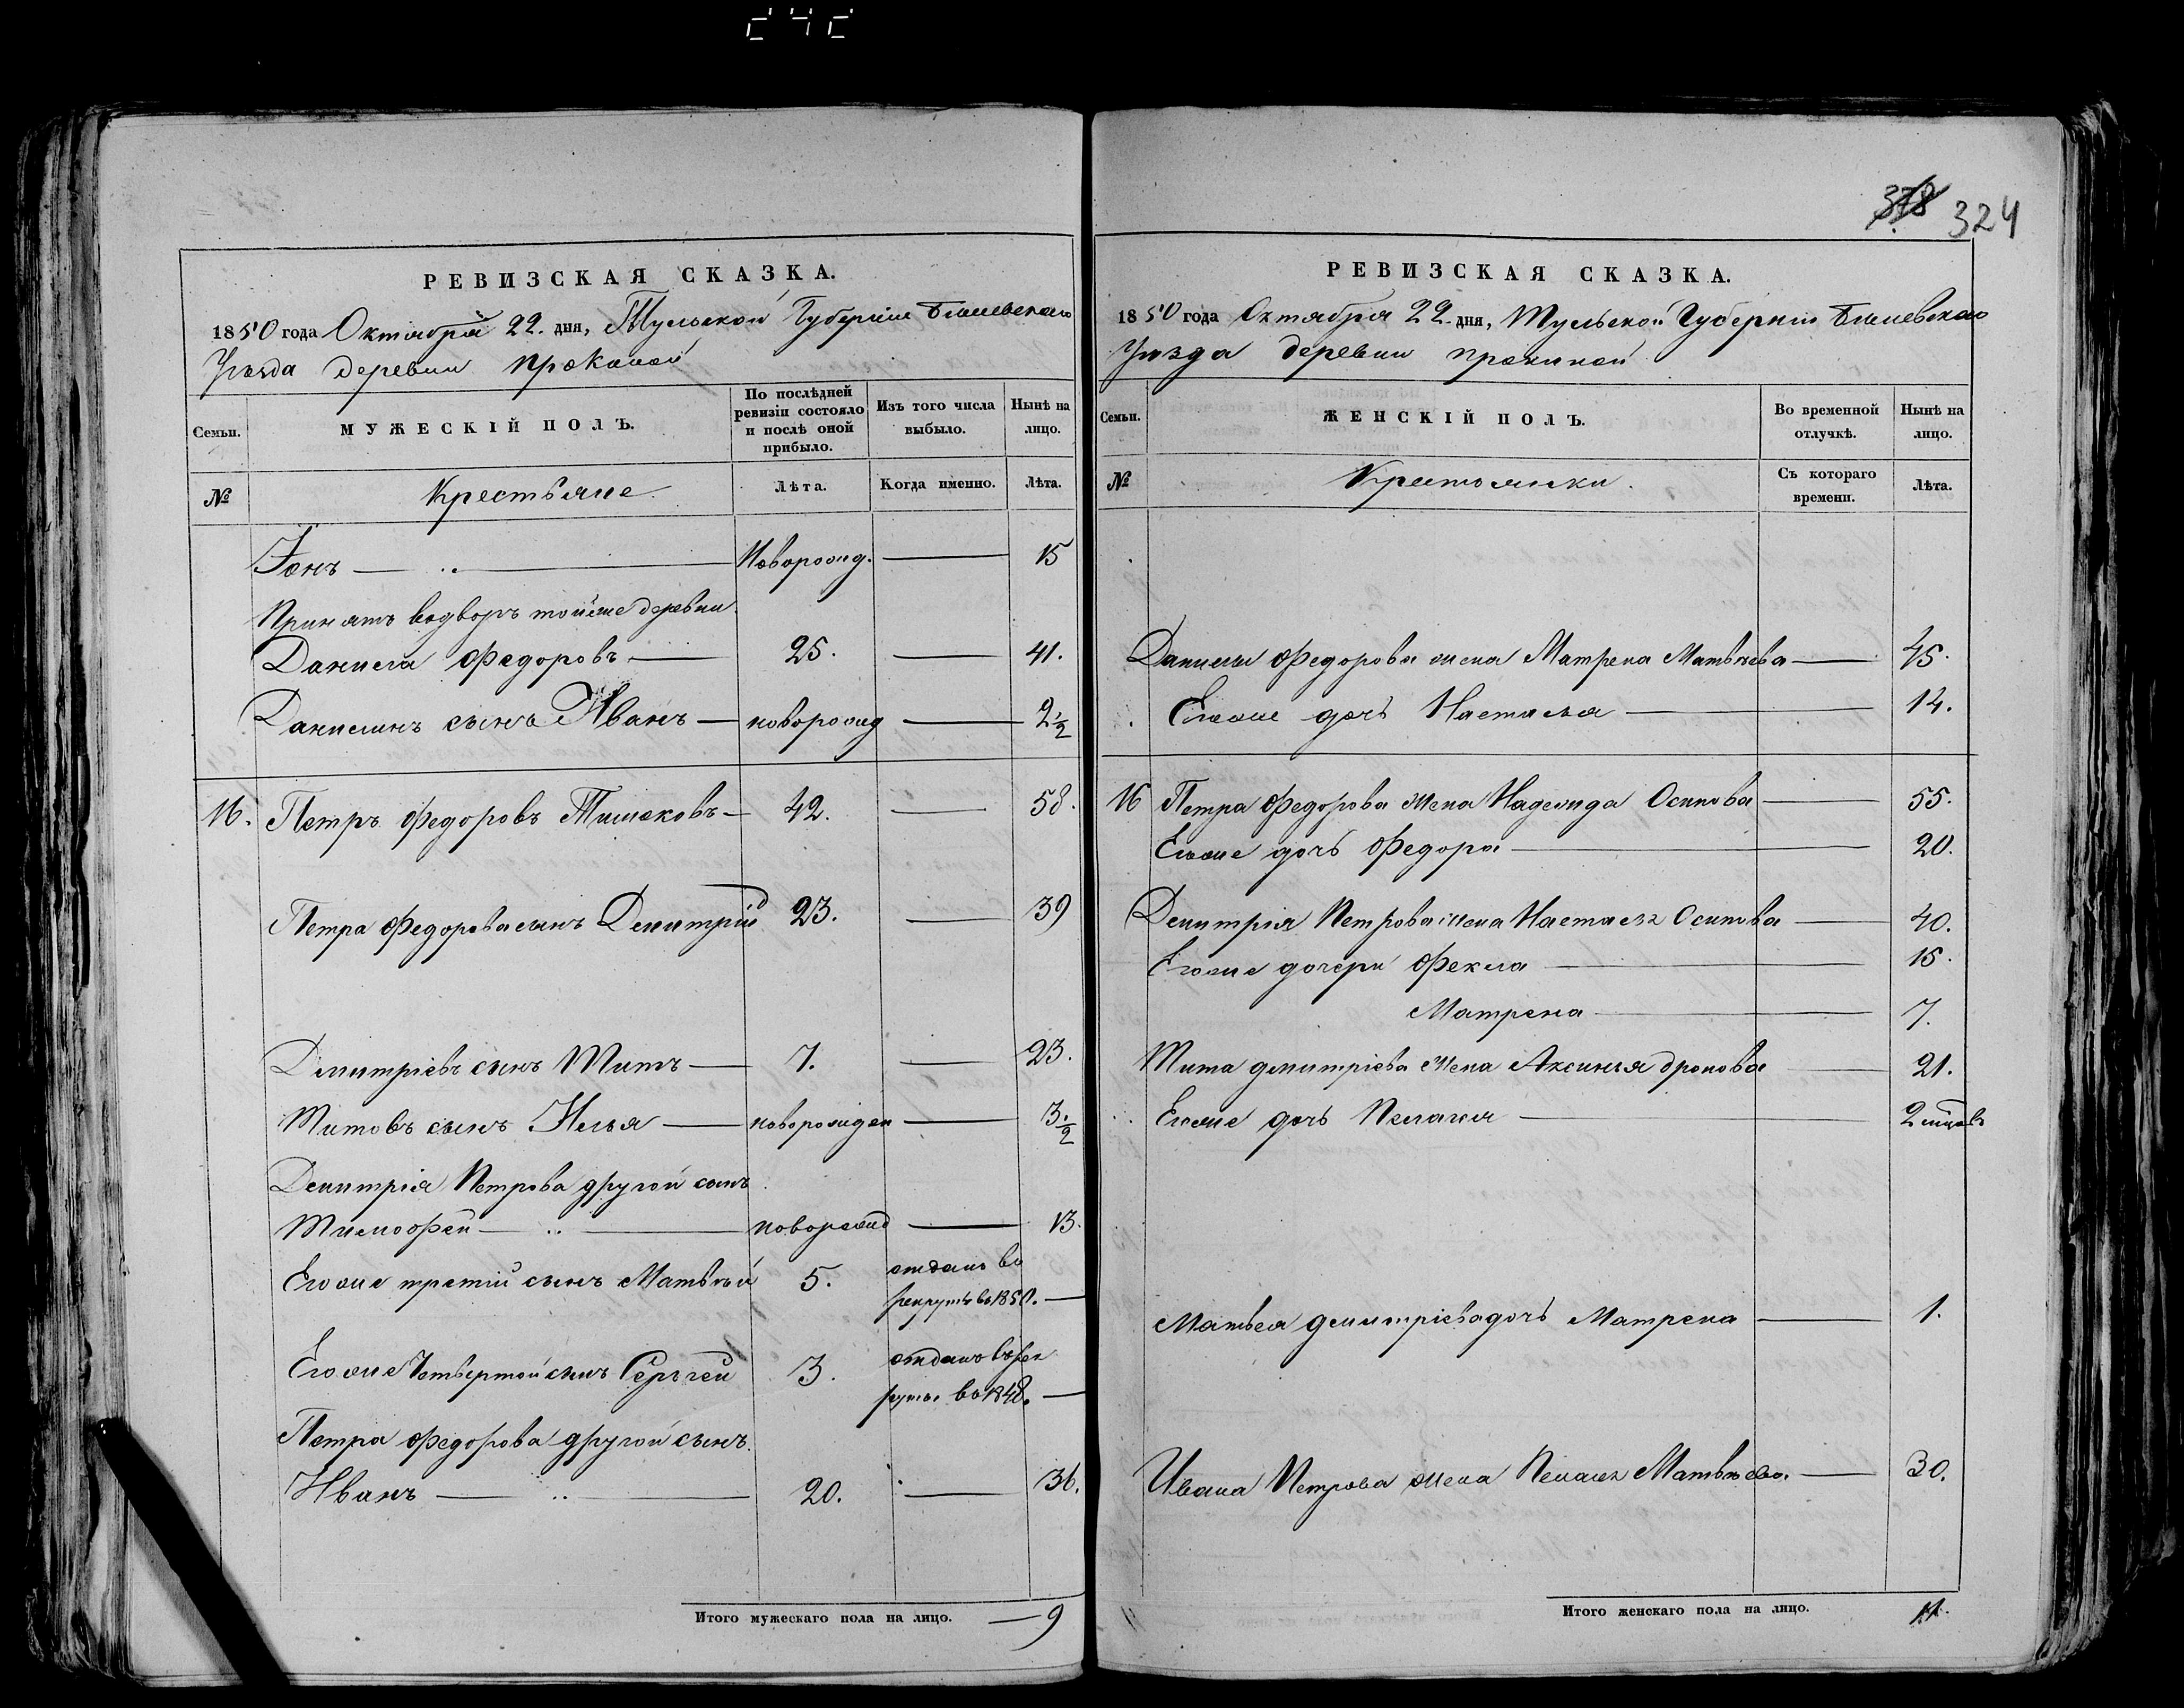 378 324
РЕВИЗСКАЯ СКАЗКА.
1850 года Октября 22. дня, Тульской Губернiи Бѣлевскаго
Уѣзда деревни
Семьи.
МУЖЕСКIЙ ПОЛЪ.
По послѣдней ревизiи состояло и послѣ оной прибыло.
Изъ того числа выбыло.
Нынѣ на лицо.
№
Крестьяне
Лѣта.
Когда именно.
Лѣта.
Iонъ — Новорожд. — 15
Принятъ водворъ тойже деревни
Данила Федоровъ — 25. — 41.
Данилинъ сынъ Иванъ — новорожд — 2 1/2
16. Петръ Федоровъ Тишаковъ — 42. — 58.
Петра Федорова сынъ Демитрiй 23. — 39
Демитрiевъ сынъ Титъ — 7. — 23.
Титовъ сынъ Илья — новорожден — 3. 1/2
Демитрiя Петрова другой сынъ
Тимофей — новорожд — 13.
Егоже третiй сынъ Матвѣй 5. отданъ во
рекруты въ 1850. —
Егоже Четвертой сынъ Сергей 3. отданъ въ рек
руты въ 1848. —
Петра Федорова другой сынъ
Иванъ — 20. — 36.
Итого мужескаго пола на лицо. — 9
РЕВИЗСКАЯ СКАЗКА.
1850 года Октября 22. дня, Тульской Губернiи Бѣлевскаго
Уѣзда деревни
Семьи.
ЖЕНСКIЙ ПОЛЪ.
Во временной отлучкѣ.
Нынѣ на лицо.
№
Крестьянки.
Съ котораго времени.
Лѣта.
Данилы Федорова жена Матрена Матвѣева — 45.
Егоже дочь Настасья — 14.
16 Петра Федорова жена Надежда Осипова — 55.
Егоже дочь Федора — 20.
Демитрiя Петрова жена Настасья Осипова — 40.
Егоже дочери Фекла — 15.
Матрена — 7.
Тита демитрiева жена Аксинья — 21.
Егоже дочь Пелагея — 2 мѣсяцовъ
Матвея демитрiева дочь Матрена — 1.
Ивана Петрова жена Пелагея Матвѣева. — 30.
Итого женскаго пола на лицо. 11.